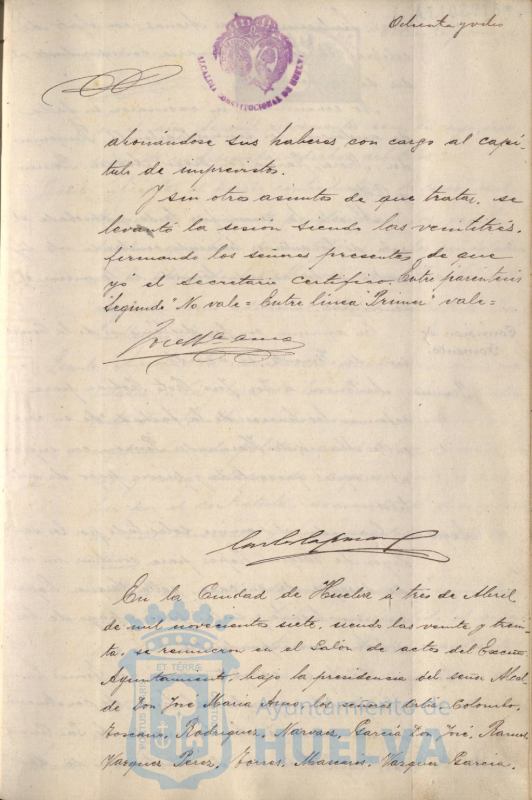 Ochenta y ocho
ALCALDIA CONSTITUCIONAL DE HUELVA
abonándose sus haberes con cargo al capi-
tulo de imprevistos.
Y sin otros asuntos de que tratar, se
levantó la sesión siendo las veintitrés,
firmando los señores presentes, de que
yó el Secretario certifico. Entre parentesis
"Segundo" No vale = Entre linea "Primer" vale =
En la Ciudad de Huelva á tres de Abril
de mil novecientos siete, siendo las veinte y trein-
ta, se reunieron en el Salón de actos del Excmo
Ayuntamiento, bajo la presidencia del señor Alcal-
de Don José Maria Amo, los señores de la Colombo,
Toscano, Rodriguez, Narvaez, García Don José, Ramos
Vazquez Perez, Torres, Mascaros, Vazquez Garcia,
PORTUS MARIS ET TERRÆ CUSTODIA
Ayuntamiento de
HUELVA